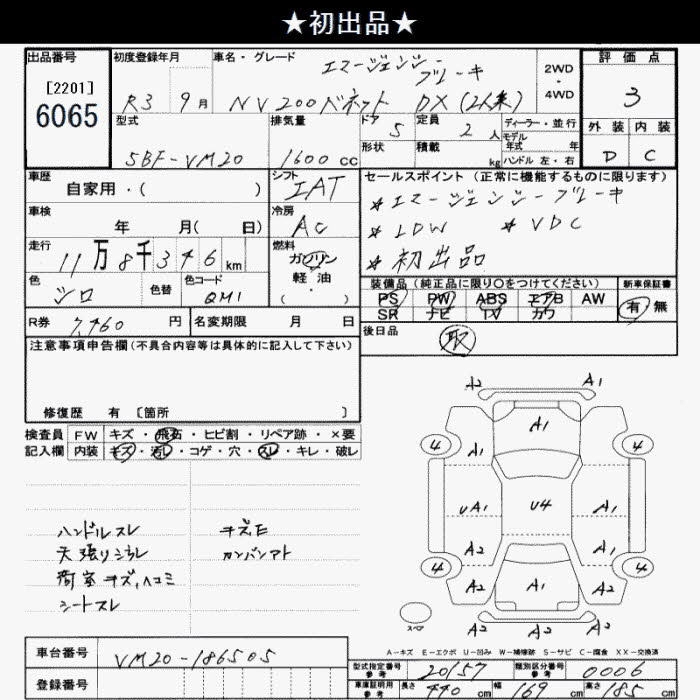 ★初出品★
出品番号 初度登録年月 車名・グレード エマージェンシーブレーキ 2WD・4WD 評価点
[2201]
6065
R3 9月 NV200バネット DX(2人乗) 3
型式 排気量 ドア 5 定員 2人 ディーラー・並行 外装 内装
モデル年式 年
5BF-VM20 1600cc 形状 積載 kg ハンドル 左・右 D C
車歴 シフト セールスポイント(正常に機能するものに限ります)
自家用・( ) IAT
*エマージェンシーブレーキ
車検 冷房
年 月( 日) AC
*LDW *VDC
走行 燃料
11万8千346km ガソリン
*初出品
軽油
・( )
色 色替 色コード
シロ QM1
装備品(純正品に限り○をつけてください) 新車保証書
PS PW ABS エアB AW 有・無
SR ナビ TV カワ
R券 7,460円 名変期限 月 日
後日品 取
注意事項申告欄(不具合内容等は具体的に記入して下さい)
修復歴 有 〔箇所 〕
検査員 FW キズ・飛石・ヒビ割・リペア跡・×要
記入欄 内装 キズ・汚レ・コゲ・穴・スレ・キレ・破レ
ハンドルスレ キズE
天張りシミレ カンバンアト
荷室キズ,ヘコミ
シートスレ
A2 A1
4 A1 4
A1 A1
UA1 U4 A1
A2 A1
4 A2 A1 A2 4
スペア A2 A2 A2
A-キズ E-エクボ U-凹み W-補修跡 S-サビ C-腐食 XX-交換済
車台番号 VM20-186505
登録番号
型式指定番号 参考 20157 類別区分番号 参考 0006
車庫証明用 参考 長さ 440cm 幅 169cm 高さ 185cm